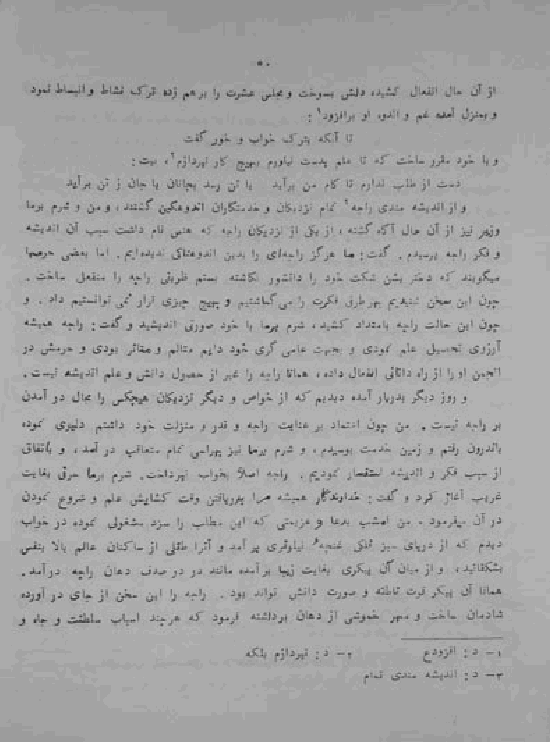 ۵۰
از آن حال انفعال کشیده دلش بسوخت و مجلس عشرت را برهم زده ترک نشاط و انبساط نمود
و بمنزل آمده غم و اندوه او برافزود۱ :
تا آنکه بترک خواب و خور گفت
و با خود مقرر ساخت که تا علم بدست نیاورم بهیچ کار نپردازم۲، بیت :
دست از طلب ندارم تا کام من برآید یا تن رسد بجانان یا جان ز تن برآید
و از اندیشه مندی راجه۳ تمام نزدیکان و خدمتکاران اندوهگین گشتند، و من و شرم برما
وزیر نیز از آن حال آگاه گشته، از یکی از نزدیکان راجه که هنس نام داشت سبب آن اندیشه
و فکر راجه پرسیدم. گفت: ما هرگز راجه را بدین اندوهناکی ندیده‌ایم. اما بعضی حرمها
میگویند که دختر بشن شکت خود را دانشور نگاشته بستم ظریفی راجه را منفعل ساخت.
چون این سخن شنیدیم بهر طرف فکرت را می گماشتیم و بهیچ چیزی قرار نمی توانستیم داد. و
چون این حالت راجه بامتداد کشید، شرم برما با خود صورتی اندیشید و گفت: راجه همیشه
آرزوی تحصیل علم نمودی و بجهت عامی گری خود دایم متالم و متاثر بودی و حرمش در
انجمن او را از راه دانائی انفعال داده، همانا راجه را غیر از حصول دانش و علم اندیشه نیست.
و روز دیگر بدربار آمده دیدیم که از خواص و دیگر نزدیکان هیچکس را مجال در آمدن
بر راجه نیست. من چون اعتماد بر عنایت راجه و قدر و منزلت خود داشتم دلیری نموده
باندرون رفتم و زمین خدمت بوسیدم، و شرم برما نیز بهراسی تمام متعاقب در آمد، و باتفاق
از سبب فکر و اندیشه استفسار نمودیم. راجه اصلاً بجواب نپرداخت. شرم برما حرفی بغایت
غریب آغاز کرد و گفت: خداوندگار همیشه مرا بدریافتن وقت گشایش علم و شروع نمودن
در آن میفرمود. من امشب بدعا و عزیمتی که این مطلب را سزد مشغولی نموده در خواب
دیدم که از دریای سبز فلکی غنچه نیلوفری بر آمد و آنرا طفلی از ساکنان عالم بالا بنفس
بشکفانید، و از میان آن پیکری بغایت زیبا بر آمده مانند در در صدف دهان راجه در آمد.
همانا آن پیکر قوت ناطقه و صورت دانش تواند بود. راجه را این سخن از جای در آورده
شادمان ساخت و مهر خموشی از دهان برداشته فرمود که هرچند اسباب سلطنت و جاه و
۱- د: افزودع ۲- د: نپردازم بلکه
۳- د: اندیشه مندی تمام